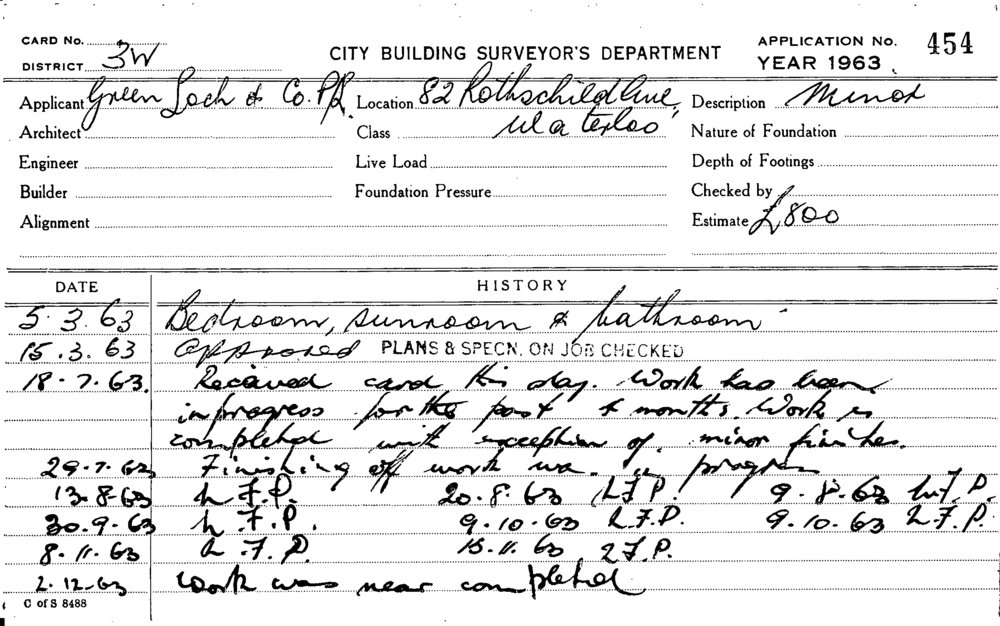 CARD No. APPLICATION No. 454
DISTRICT 3W CITY BUILDING SURVEYOR'S DEPARTMENT YEAR 1963
Applicant Green Loch & Co. P/L. Location 82 Rothschild Ave, Description Minor
Architect Class Waterloo Nature of Foundation
Engineer Live Load Depth of Footings
Builder Foundation Pressure Checked by
Alignment Estimate £800
DATE HISTORY
5.3.63 Bedroom, sunroom & bathroom
15.3.63 approved PLANS & SPECN. ON JOB CHECKED
18.7.63. Received card this day. Work has been
in progress for the past 4 months. Work is
completed with exception of minor finishes.
29.7.63 Finishing off work was in progress
13.8.63 F.P. 20.8.63 F.P. 9.8.63 F.P.
30.9.63 F.P. 9.10.63 F.P. 9.10.63 F.P.
8.11.63 F.P. 15.11.63 F.P.
2.12.63 Work was near completed
C of S 8488